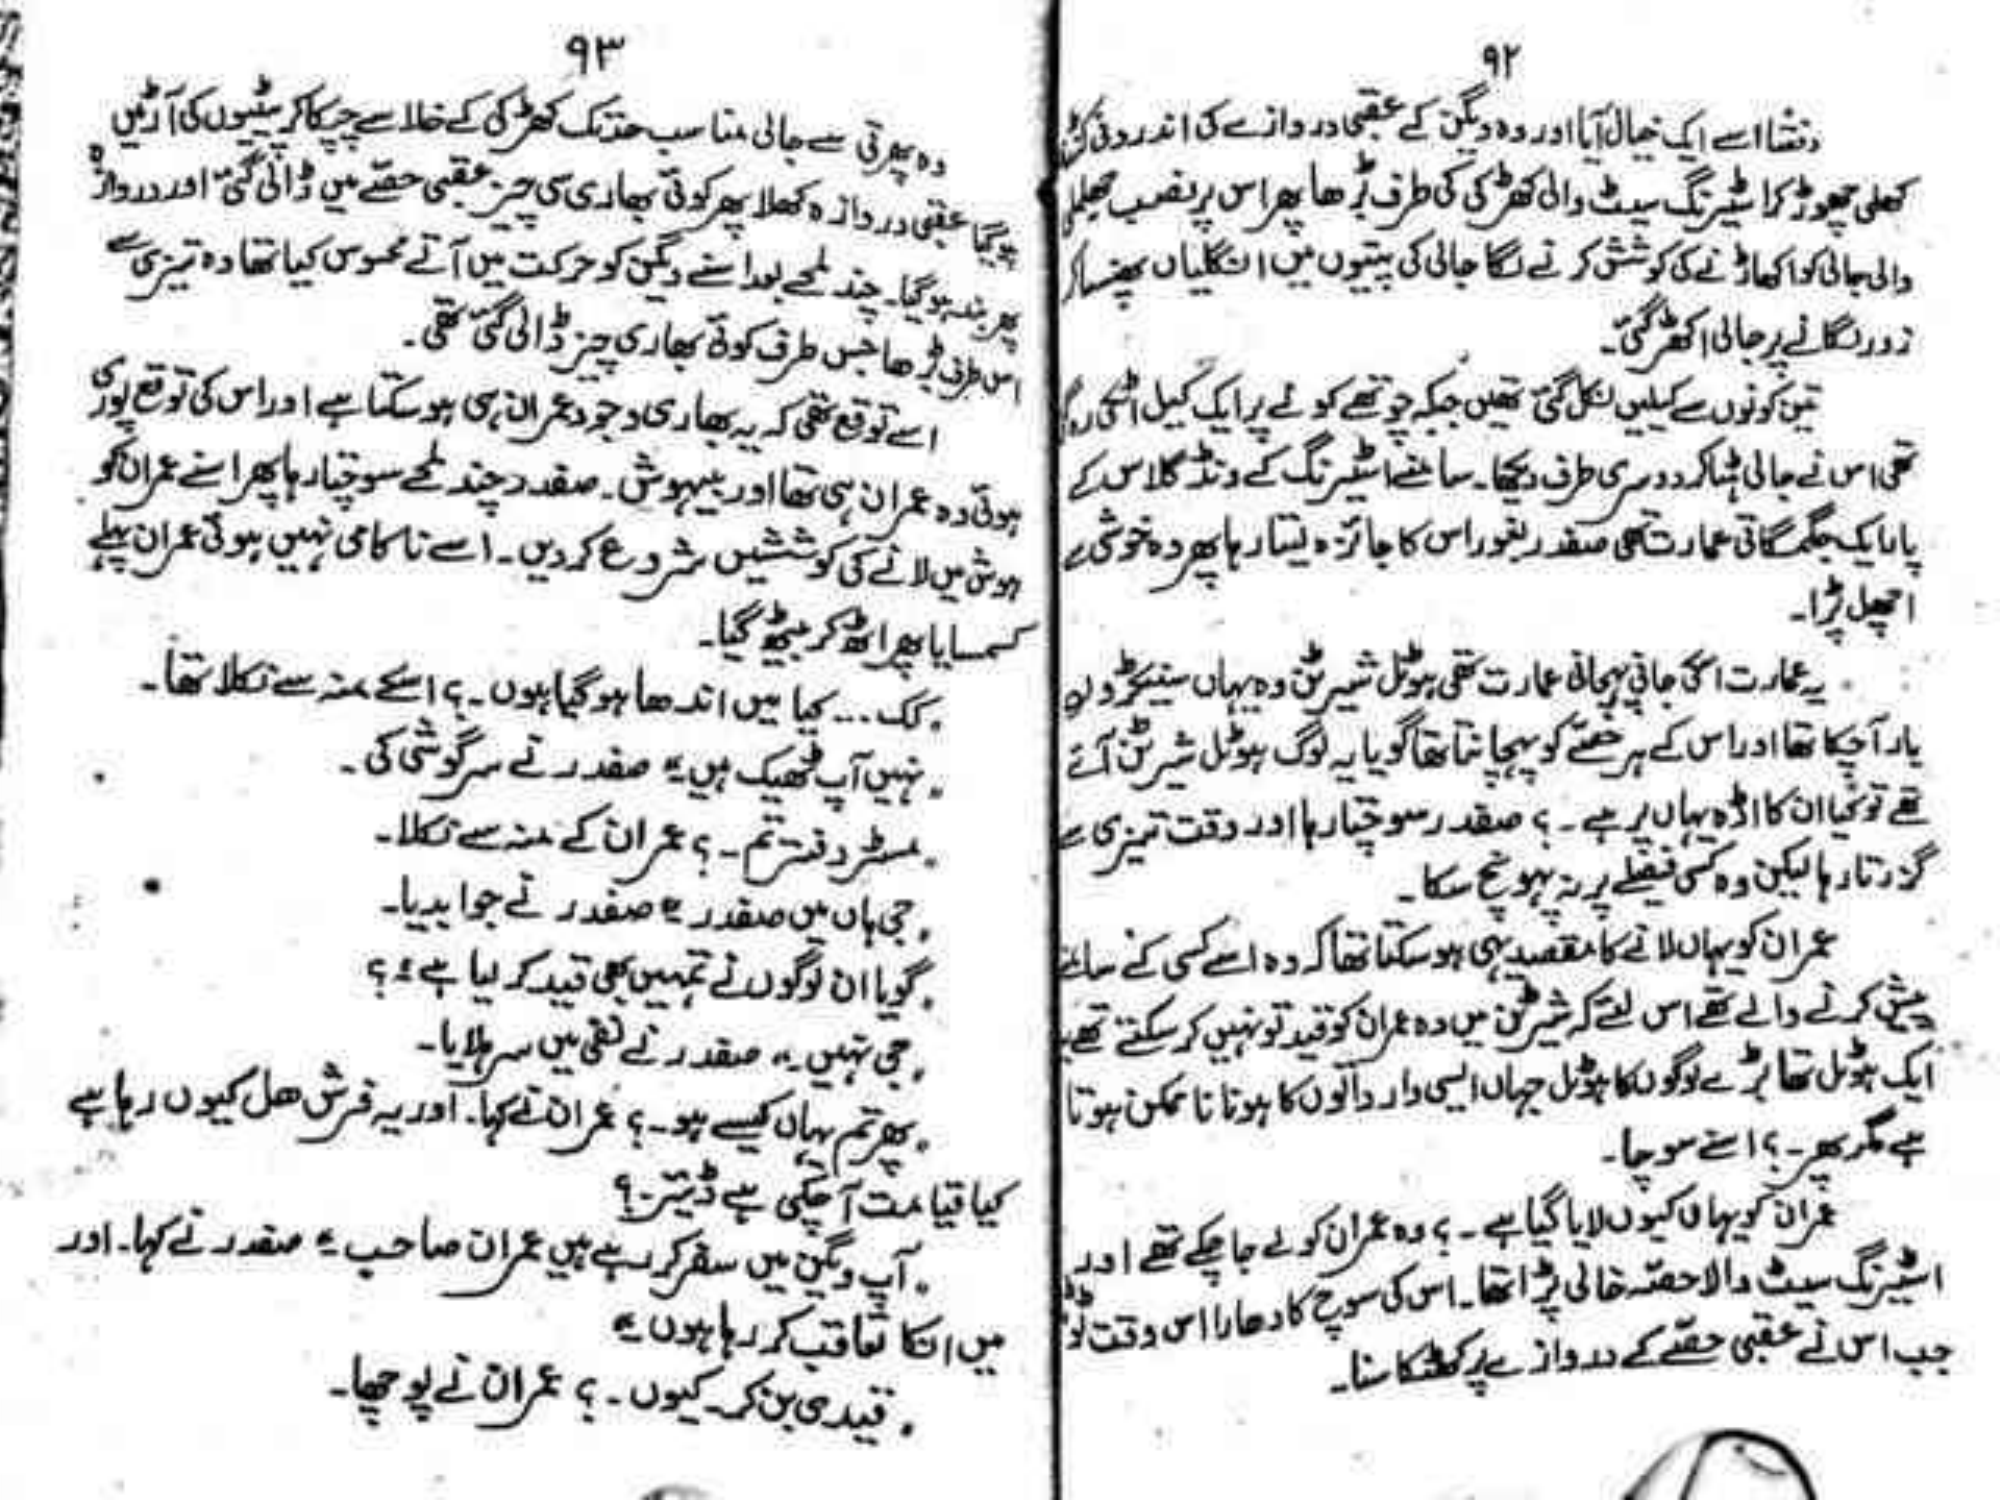 ۹۲
دفعتاً اسے ایک خیال آیا اور وہ ویگن کے عقبی دروازے کی اندرونی
کھلی چھوڑ کر اسٹیرنگ سیٹ والی کھڑکی کی طرف بڑھا پھر اس پر نصب جھلملی
والی جالی کو اکھاڑنے کی کوشش کرنے لگا جالی کی پیتیوں میں انگلیاں پھنسا کر
زور لگانے پر جالی اکھڑ گئی۔
تین کونوں سے کیلیں نکل گئی تھیں جبکہ چوتھے کونے پر ایک کیل اٹکی رہ
تھی اس نے جالی ہٹا کر دوسری طرف دیکھا۔ سامنے اسٹیرنگ کے ونڈ گلاس کے
پار ایک جگمگاتی عمارت تھی صفدر بغور اس کا جائزہ لیتا رہا پھر وہ خوشی سے
اچھل پڑا۔
یہ عمارت اسکی جانی پہچانی عمارت تھی ہوٹل شیرٹن وہ یہاں سینکڑوں
بار آچکا تھا اور اس کے ہر حصّے کو پہچانتا تھا گویا یہ لوگ ہوٹل شیرٹن آئے
تھے تو کیا ان کا اڈہ یہاں پر ہے۔؟ صفدر سوچتا رہا اور وقت تیزی سے
گزرتا رہا لیکن وہ کسی فیصلے پر نہ پہونچ سکا۔
عمران کو یہاں لانے کا مقصد یہی ہو سکتا تھا کہ وہ اسے کسی کے سامنے
پیش کرنے والے تھے اس لئے کہ شیرٹن میں وہ عمران کو قید تو نہیں کر سکتے تھے
ایک ہوٹل تھا بڑے لوگوں کا ہوٹل جہاں ایسی وارداتوں کا ہونا ناممکن ہوتا
ہے مگر پھر۔؟ اسنے سوچا۔
عمران کو یہاں کیوں لایا گیا ہے۔؟ وہ عمران کو لے جا چکے تھے اور
اسٹیرنگ سیٹ والا حصّہ خالی پڑا تھا۔ اس کی سوچ کا دھارا اس وقت
جب اس نے عقبی حصّے کے دروازے پر کھٹکا سنا۔
۹۳
وہ پھرتی سے جالی مناسب حد تک کھڑکی کے خلا سے چپکا کر پیٹیوں کی آڑ میں
ہو گیا عقبی دروازہ کھلا پھر کوئی بھاری سی چیز عقبی حصّے میں ڈالی گئی اور دروازہ
پھر بند ہو گیا۔ چند لمحے بعد اسنے ویگن کو حرکت میں آتے محسوس کیا تھا وہ تیزی سے
اس طرف بڑھا جس طرف کوئی بھاری چیز ڈالی گئی تھی۔
اسے توقع تھی کہ یہ بھاری وجود عمران ہی ہو سکتا ہے اور اس کی توقع پوری
ہوئی وہ عمران ہی تھا اور بیہوش۔ صفدر چند لمحے سوچتا رہا پھر اسنے عمران کو
ہوش میں لانے کی کوششیں شروع کر دیں۔ اسے ناکامی نہیں ہوئی عمران پہلے
کسمسایا پھر اٹھ کر بیٹھ گیا۔
"کک... کیا میں اندھا ہو گیا ہوں۔؟ اسکے منہ سے نکلا تھا۔
"نہیں آپ ٹھیک ہیں" صفدر نے سرگوشی کی۔
"مسٹر دفتر تم۔؟ عمران کے منہ سے نکلا۔
"جی ہاں میں صفدر" صفدر نے جواب دیا۔
"گویا ان لوگوں نے تمہیں بھی قید کر لیا ہے"؟
"جی نہیں" صفدر نے نفی میں سر ہلایا۔
"پھر تم یہاں کیسے ہو۔؟ عمران نے کہا۔ اور یہ فرش ھل کیوں رہا ہے
کیا قیامت آ چکی ہے ڈیئر۔؟
"آپ ویگن میں سفر کر رہے ہیں عمران صاحب" صفدر نے کہا۔ اور
میں انکا تعاقب کر رہا ہوں"
"قیدی بن کر۔ کیوں۔؟ عمران نے پوچھا۔